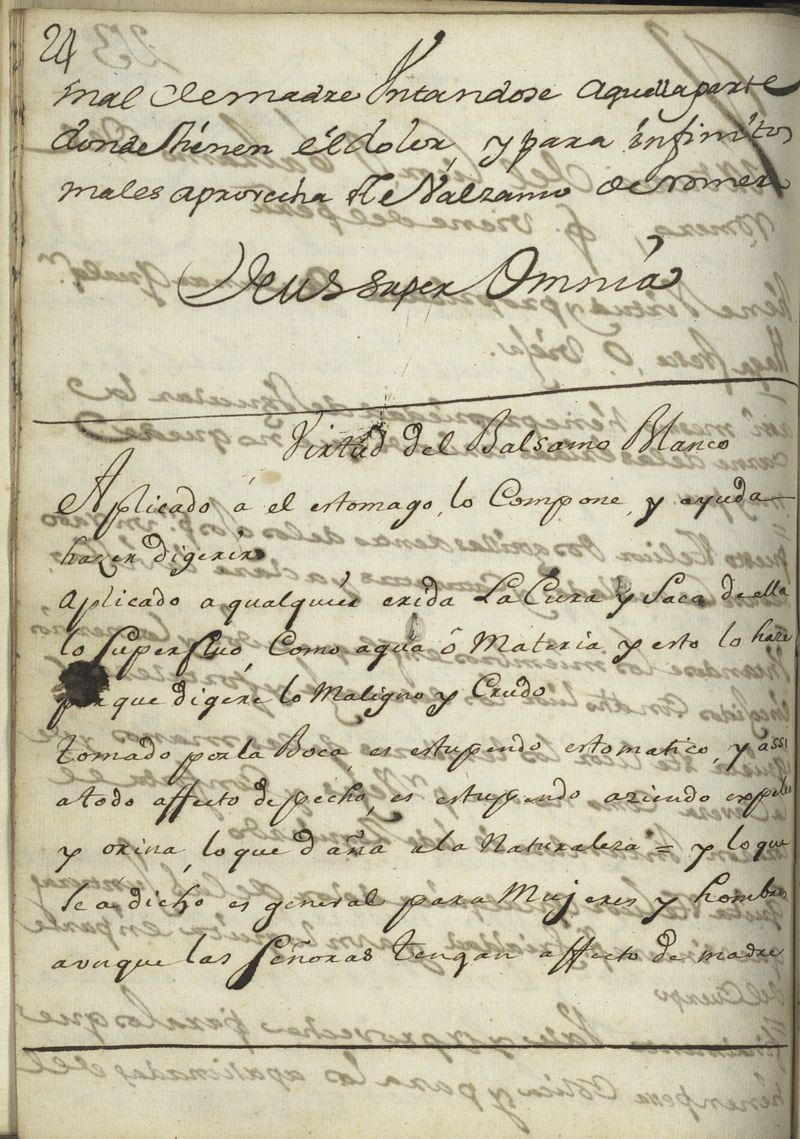 24
mal de madre Untandose aquella parte
donde thienen él dolor, y para infinitos
males aprovecha este Valzamo de romero
Deus super Omnia
Virtud del Balsamo Blanco
Aplicado á el estomago, lo Compone, y ayuda
hazer digerir
Aplicado a qualquier erida La Cura y Saca de ella
lo Superfluó, Como agua ô Materia y esto lo haze
porque digere lo Maligno y Crudo
tomado por la Boca, es estupendo estomatico, y assi
a todo affecto de pecho, es estupendo aziendo expeler
y orina, lo que daña a la Naturaleza = y lo que
se a dicho es general para Mujeres y hombres
avnque las Señoras tengan affecto de madre